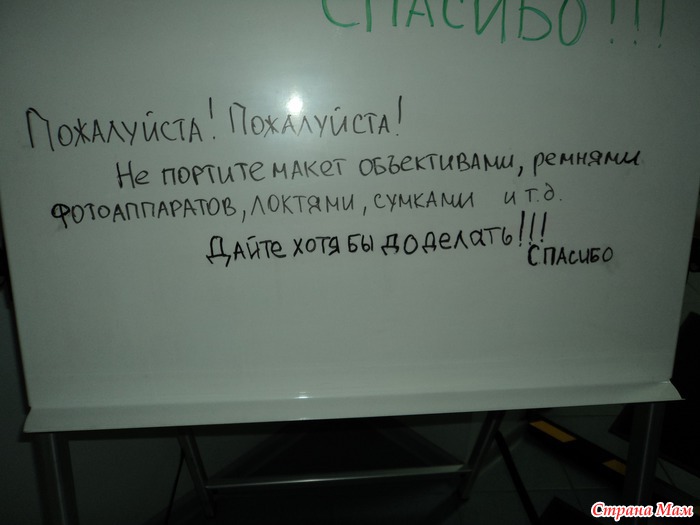 СПАСИБО!!!
Пожалуйста! Пожалуйста!
Не портите макет объективами, ремнями
фотоаппаратов, локтями, сумками и т.д.
Дайте хотя бы доделать!!!
Спасибо
Страна Мам